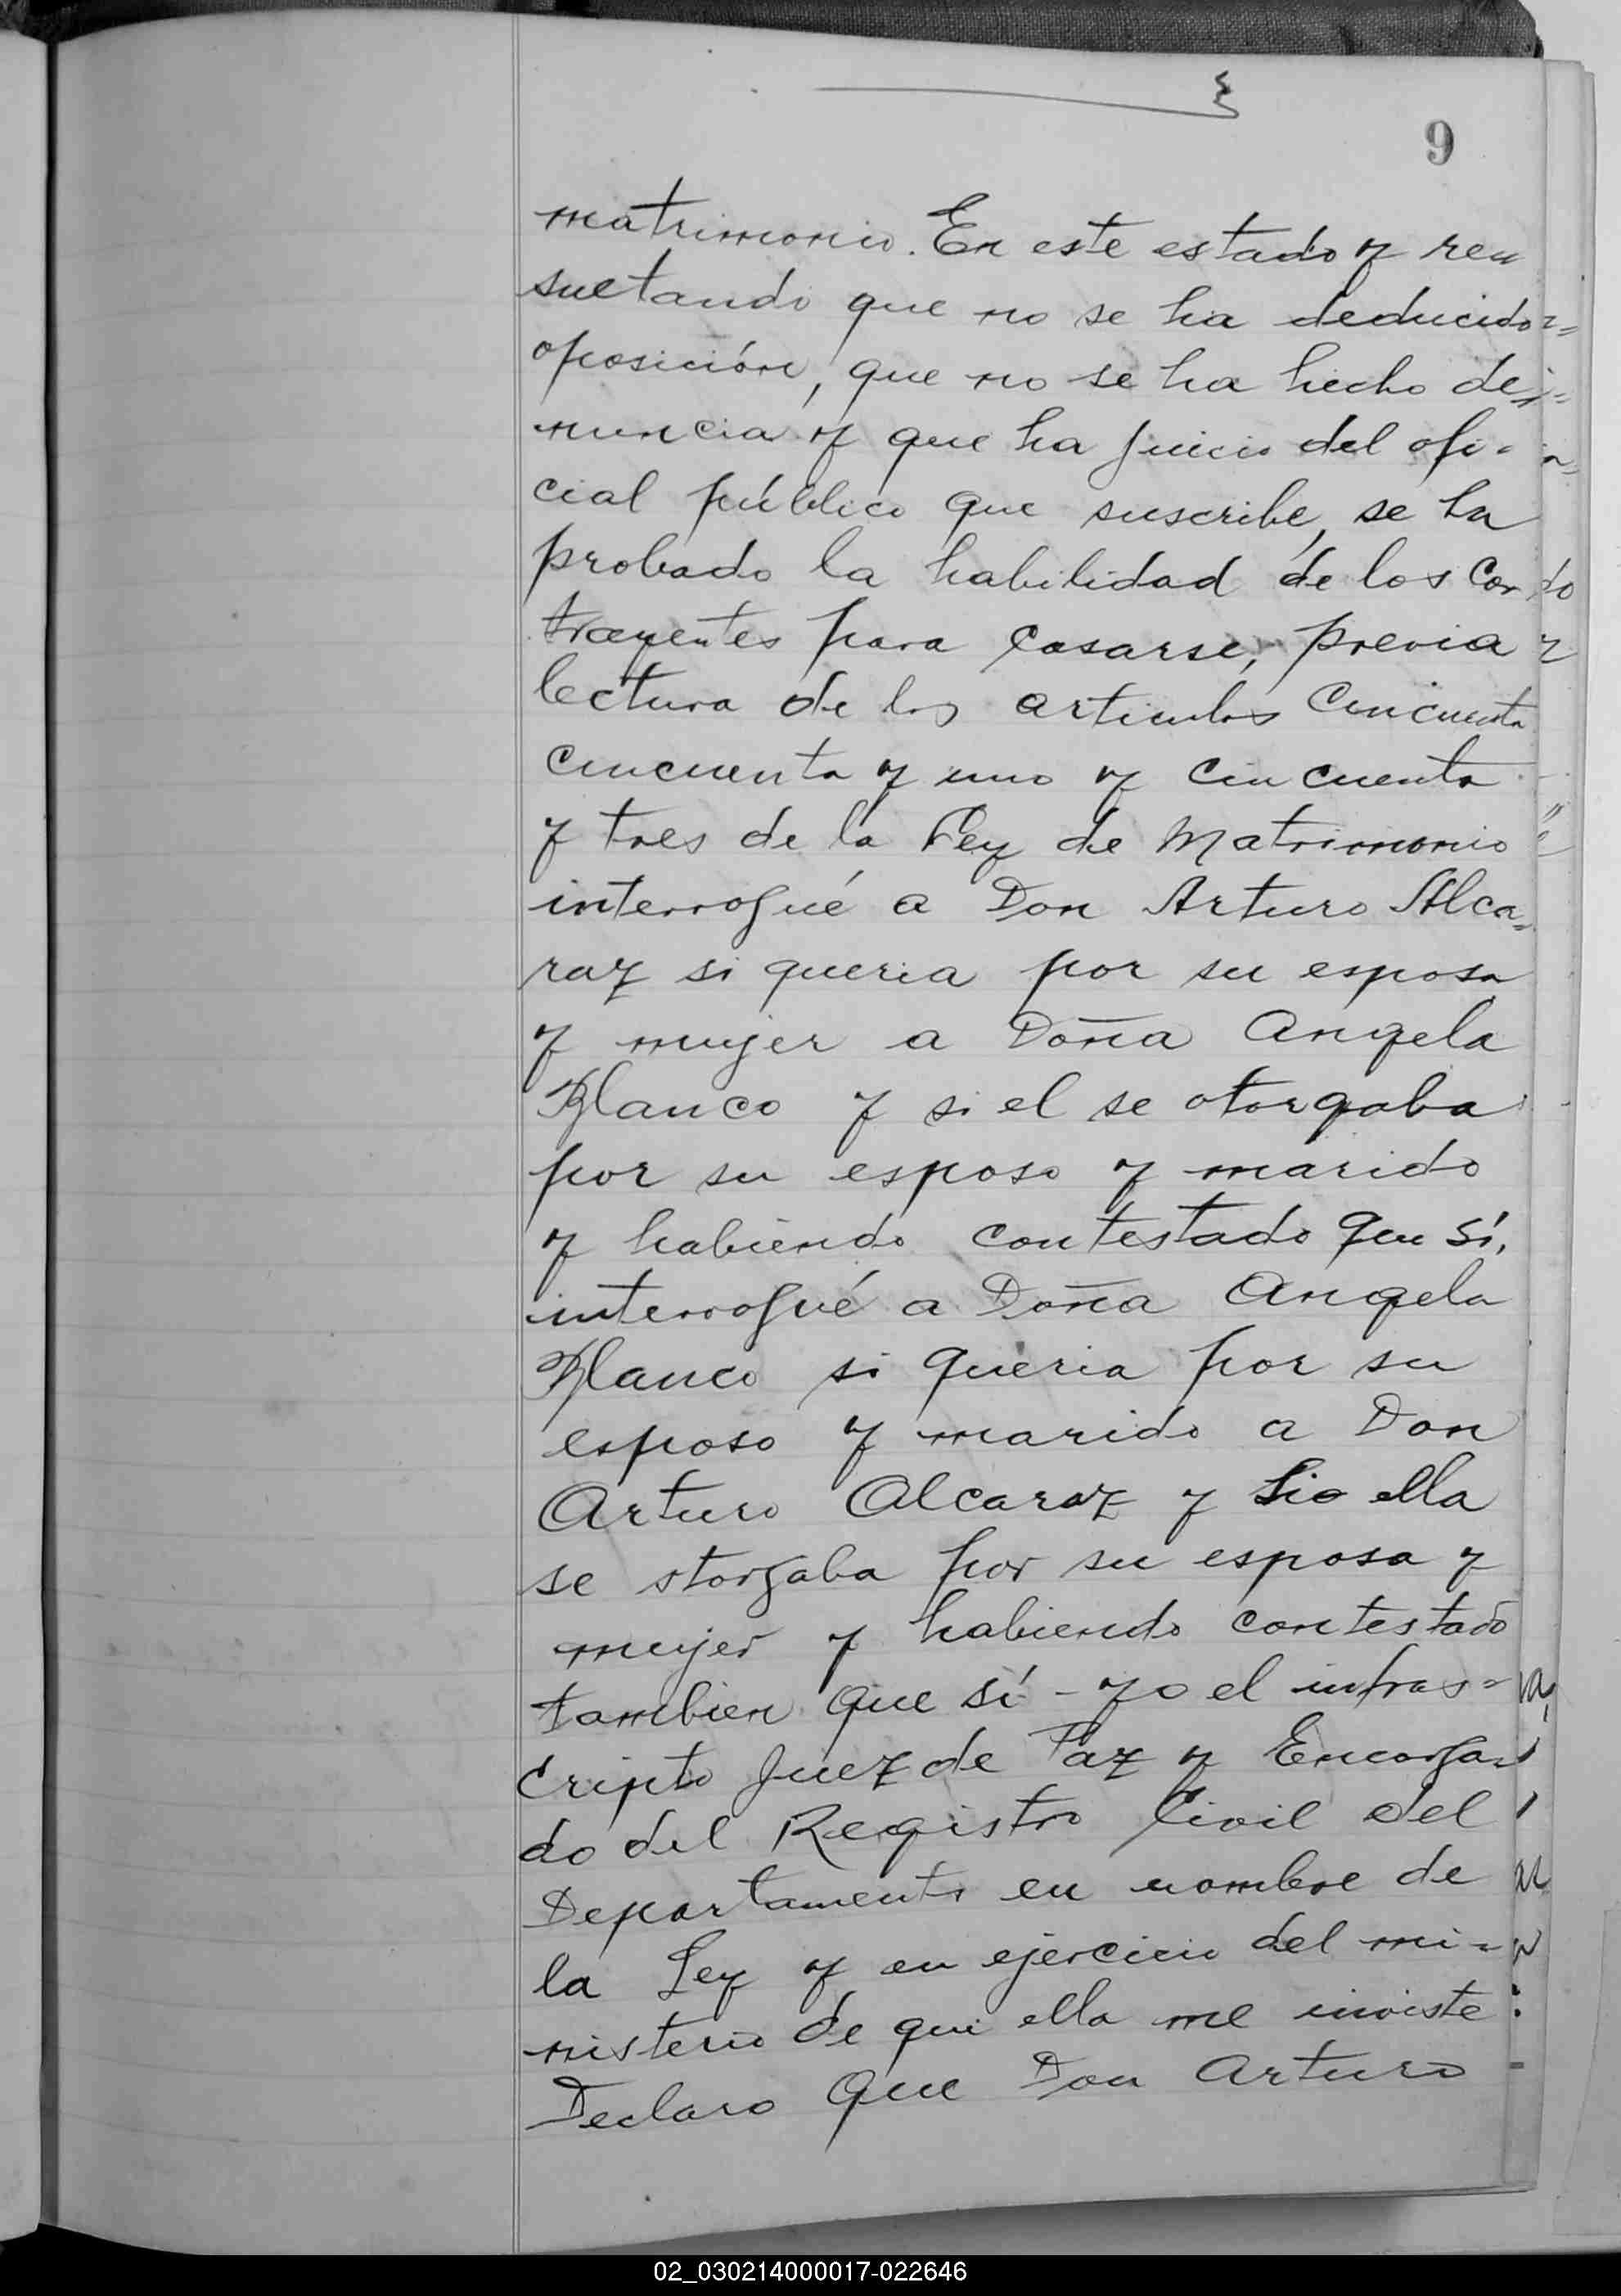 9
matrimonio. En este estado y reu
sultando que no se ha deducido
oposición, que no se ha hecho de-
nuncia y que ha juicio del ofi-
cial público que suscribe, se ha
probado la habilidad de los con
trayentes para casarse, previa
lectura de los articulos Cincuenta
cincuenta y uno y cincuenta
y tres de la Ley de Matrimonio
interrogué a Don Arturo Alca-
raz si queria por su esposa
y mujer a Doña Angela
Blanco y si el se otorgaba
por su esposo y marido
y habiendo contestado que sí,
interrogué a Doña Angela
Blanco si queria por su
esposo y marido a Don
Arturo Alcaraz y Sio ella
se otorgaba por su esposa y
mujer y habiendo contestado
tambien que sí - yo el infras-
cripto Juez de Paz y Encarga-
do del Registro Civil del
Departamento en nombre de
la Ley y en ejercicio del mi-
nisterio de que ella me inviste:
Declaro que Don Arturo
02_030214000017-022646